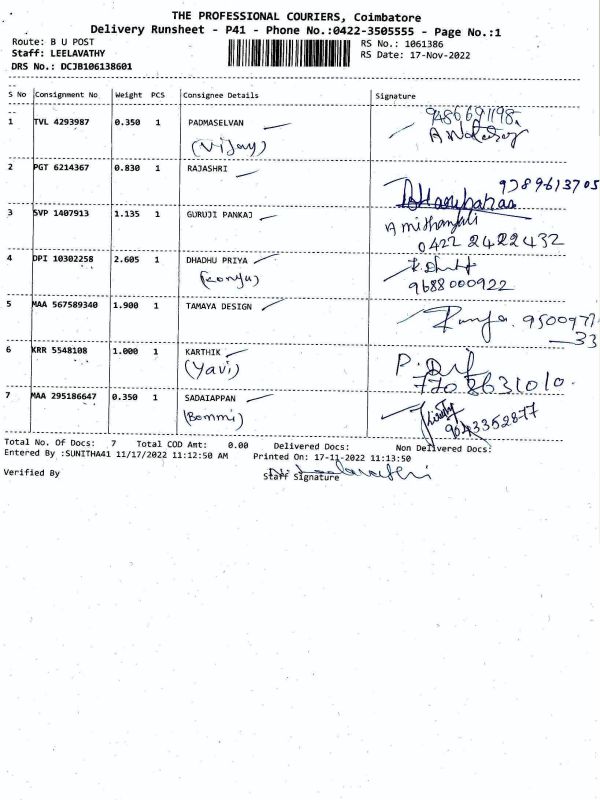 THE PROFESSIONAL COURIERS, Coimbatore
Delivery Runsheet - P41 - Phone No.:0422-3505555 - Page No.:1
Route: B U POST RS No.: 1061386
Staff: LEELAVATHY RS Date: 17-Nov-2022
DRS No.: DCJB106138601
S No Consignment No Weight PCS Consignee Details Signature
1 TVL 4293987 0.350 1 PADMASELVAN 9486691198
(Vijay)
2 PGT 6214367 0.830 1 RAJASHRI
9789613705
3 SVP 1407913 1.135 1 GURUJI PANKAJ
0422 2422432
4 DPI 10302258 2.605 1 DHADHU PRIYA
9688000922
5 MAA 567589340 1.900 1 TAMAYA DESIGN
950097733
6 KRR 5548108 1.000 1 KARTHIK
(Yavi) 7708631010.
7 MAA 295186647 0.350 1 SADAIAPPAN
(Bommi) 9043352877
Total No. Of Docs: 7 Total COD Amt: 0.00 Delivered Docs: Non Delivered Docs:
Entered By :SUNITHA41 11/17/2022 11:12:50 AM Printed On: 17-11-2022 11:13:50
Verified By Staff Signature